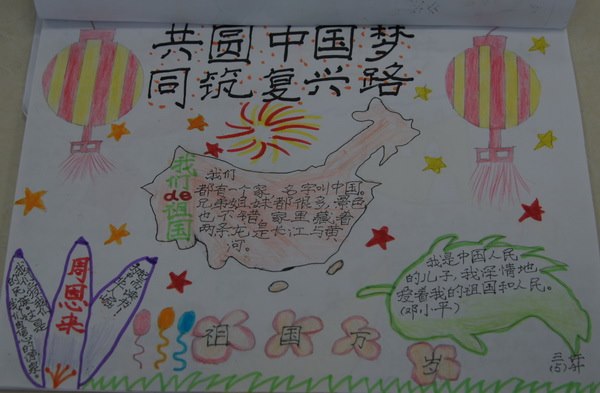 共圆中国梦
同筑复兴路
我们de祖国
我们
都有一个家，名字叫中国。
兄弟姐妹都很多，景色
也不错，家里藏着
两条龙是长江与黄
河。
我是中国人民
的儿子，我深情地
爱着我的祖国和人民。
(邓小平)
周恩来
祖国万岁
三年
(5)班